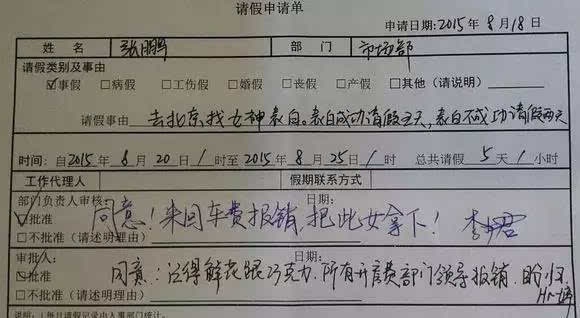 请假申请单
申请日期:2015年8月18日
姓名 张鹏 部门 市场部
请假类别及事由
☑事假 □病假 □工伤假 □婚假 □丧假 □产假 □其他（请说明）
请假事由 去北京找女神表白。表白成功请假五天，表白不成功请假两天
时间：自2015年8月20日1时至2015年8月25日1时 总共请假5天1小时
工作代理人 假期联系方式
部门负责人审核： 日期：
☑批准 同意！来回车费报销，把此女拿下！ 李君
□不批准（请述明理由）
审批人： 日期：
☑批准 同意：记得鲜花跟巧克力，所有开房费部门领导报销，盼归
□不批准（请述明理由） HR
说明：1每月请假记录由人事部门统计。